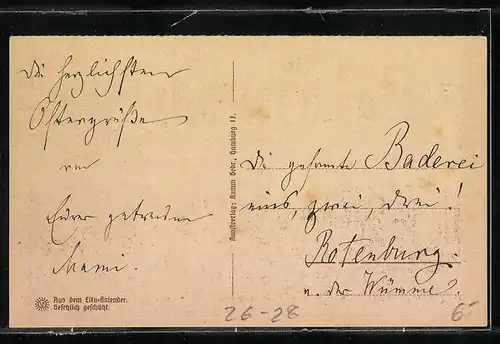 Die herzlichsten
Ostergrüße
von
Eurer getreuen
Mami.
Aus dem Lika-Kalender.
Gesetzlich geschützt.
Kunstverlag: Kumm Gebr., Hamburg 11.
Die gesamte Baderei
eins, zwei, drei!
Rotenburg.
a. der Wümme.
26-28
6-